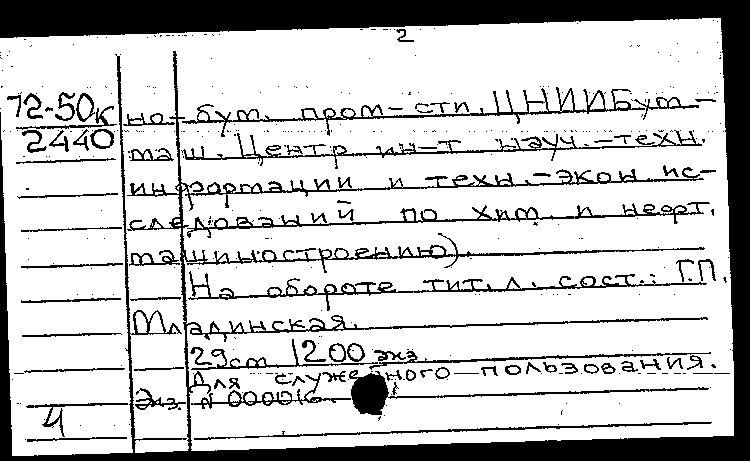 2
72-50к
2440
но-бум. пром-сти. ЦНИИБум-
маш. Центр ин-т науч.-техн.
информации и техн.-экон. ис-
следований по хим. и нефт.
машиностроению).
На обороте тит. л. сост.: Г.П.
Младинская.
29см 1200 экз.
Для служебного пользования.
Экз. № 000016.
4